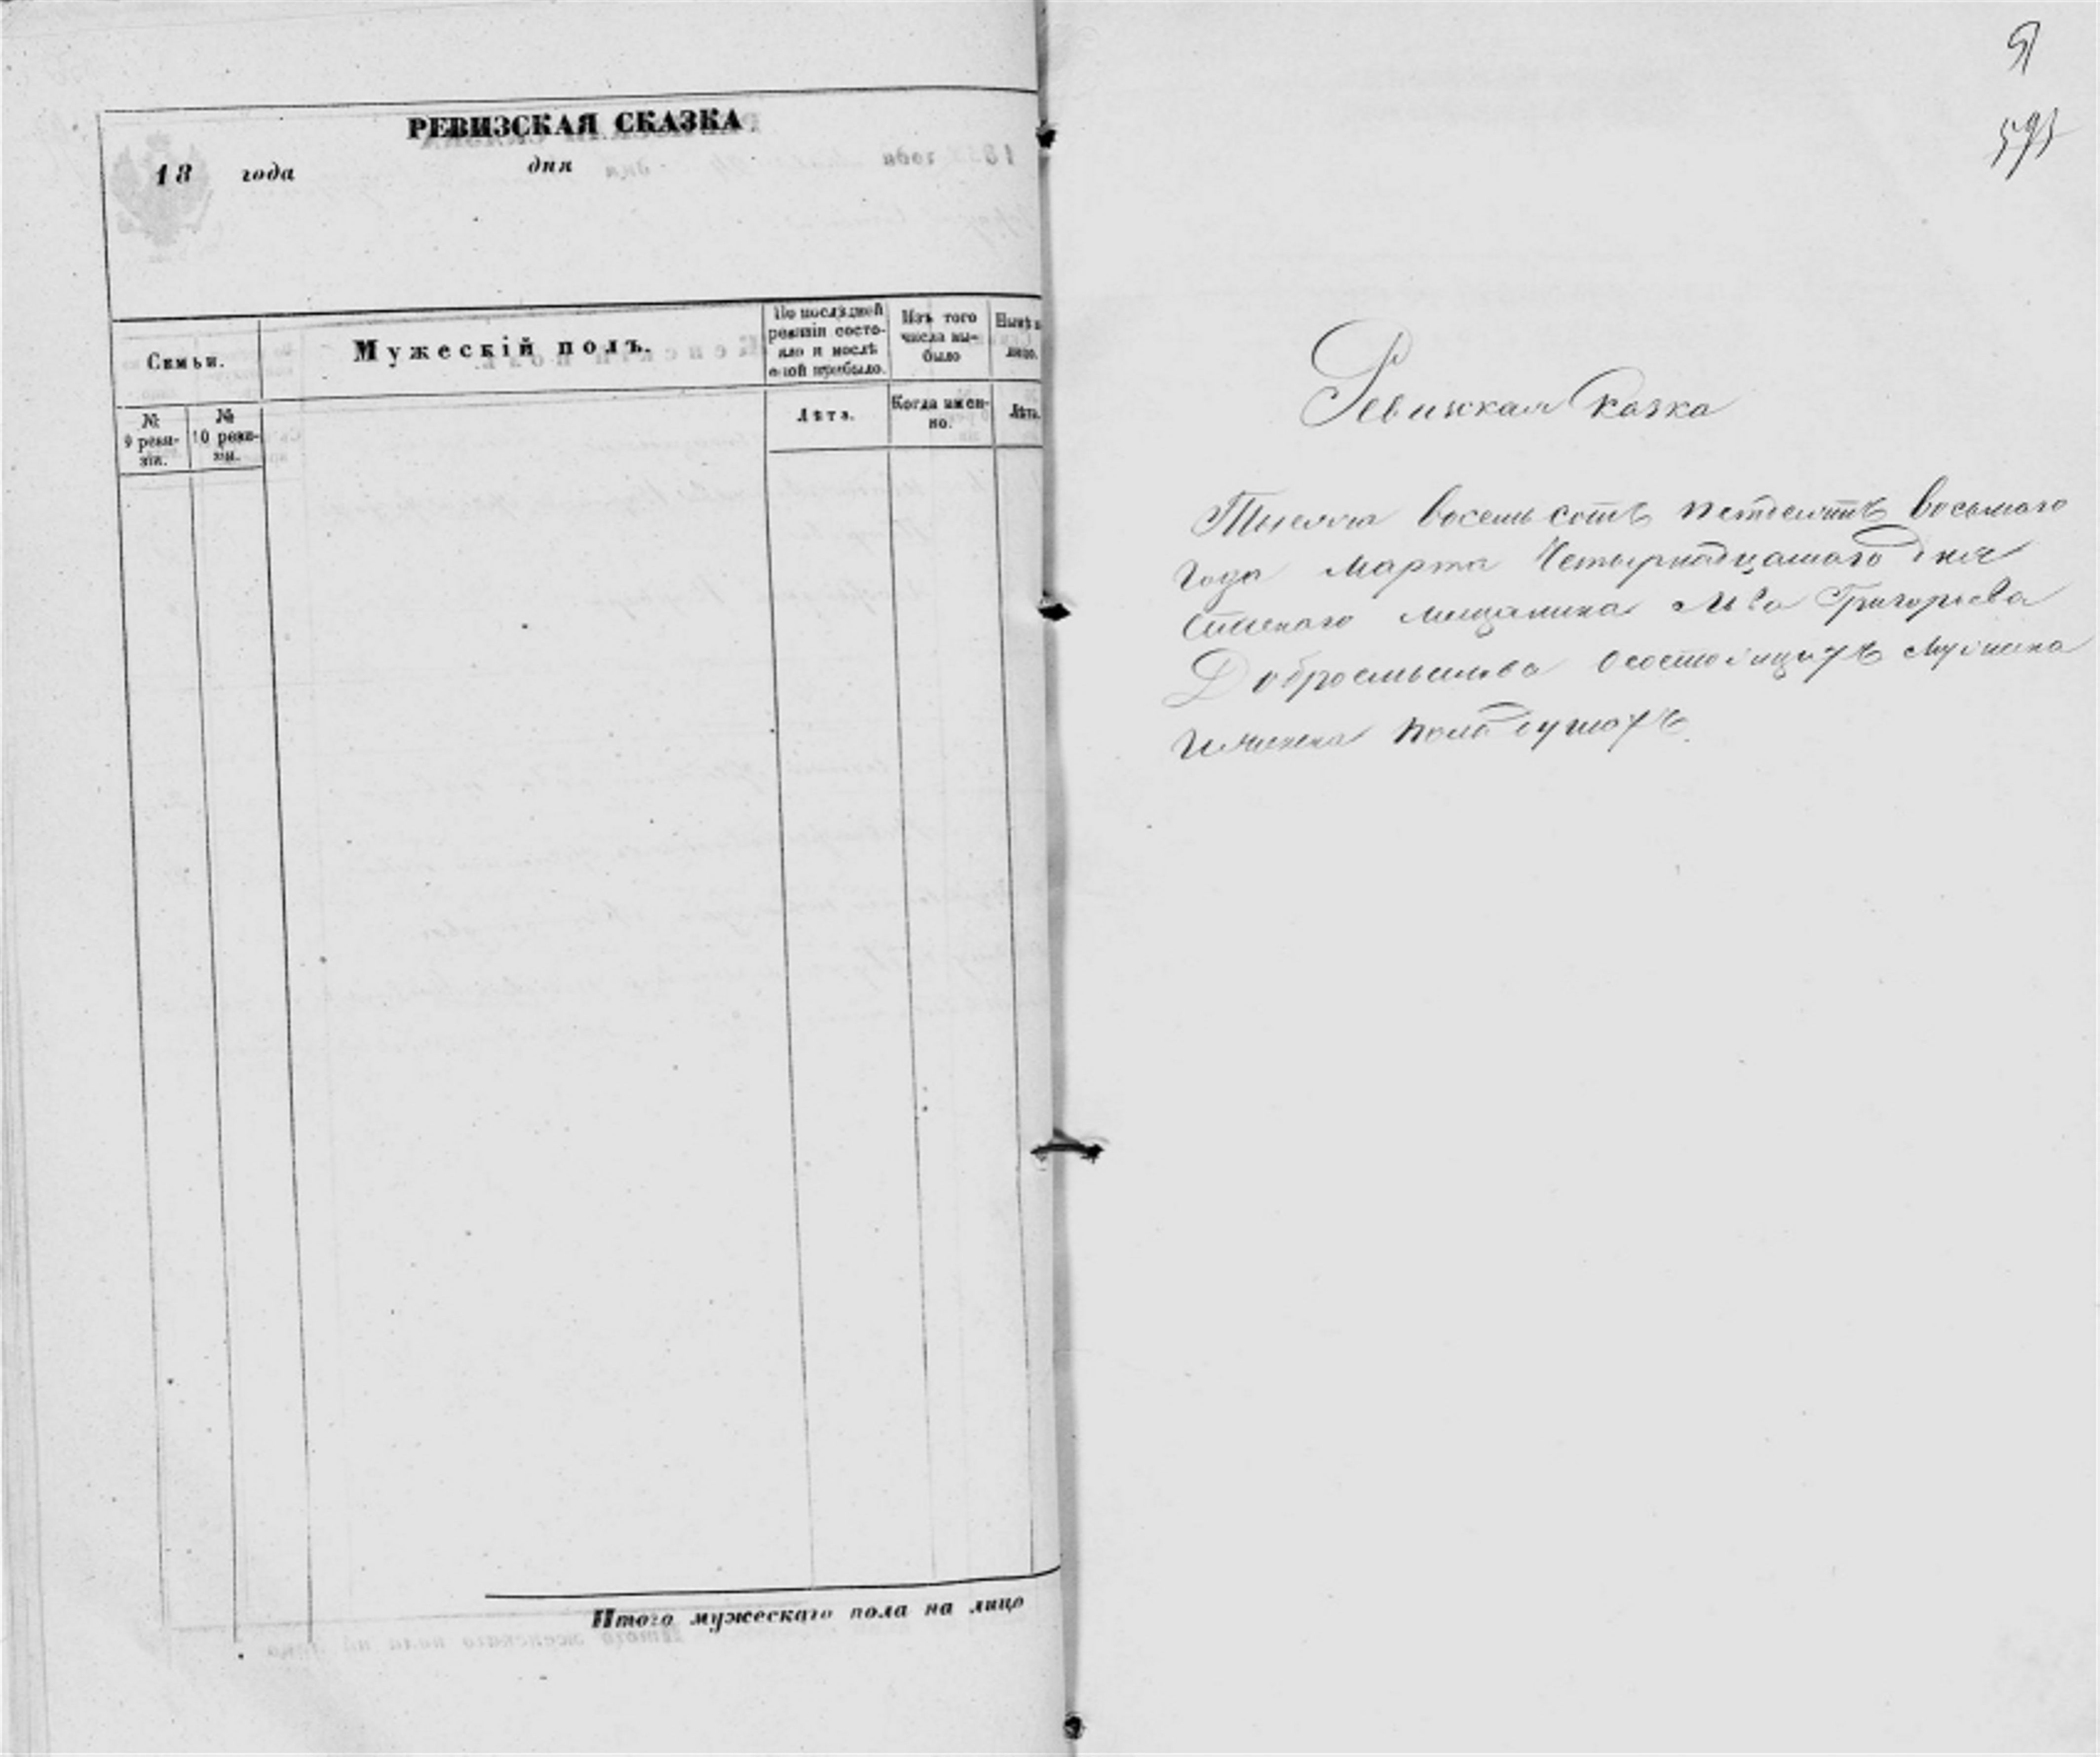 РЕВИЗСКАЯ СКАЗКА
18 года дня
Семьи.
Мужескій полъ.
По послѣдней
ревизіи состо-
яло и послѣ
оной прибыло.
Изъ того
числа вы-
было
Нынѣ на
лицо.
№
9 реви-
зіи.
№
10 реви-
зіи.
Лѣта.
Когда имен-
но.
Лѣта.
Итого мужескаго пола на лицо
Ревижкая Сказка
Тысяча восемь сотъ петдесятъ восьмаго
года Марта Четырнадцатаго дня
мищанина Льва Григорьева
Добросмыслова осостоящихъ мужеска
пола душахъ.